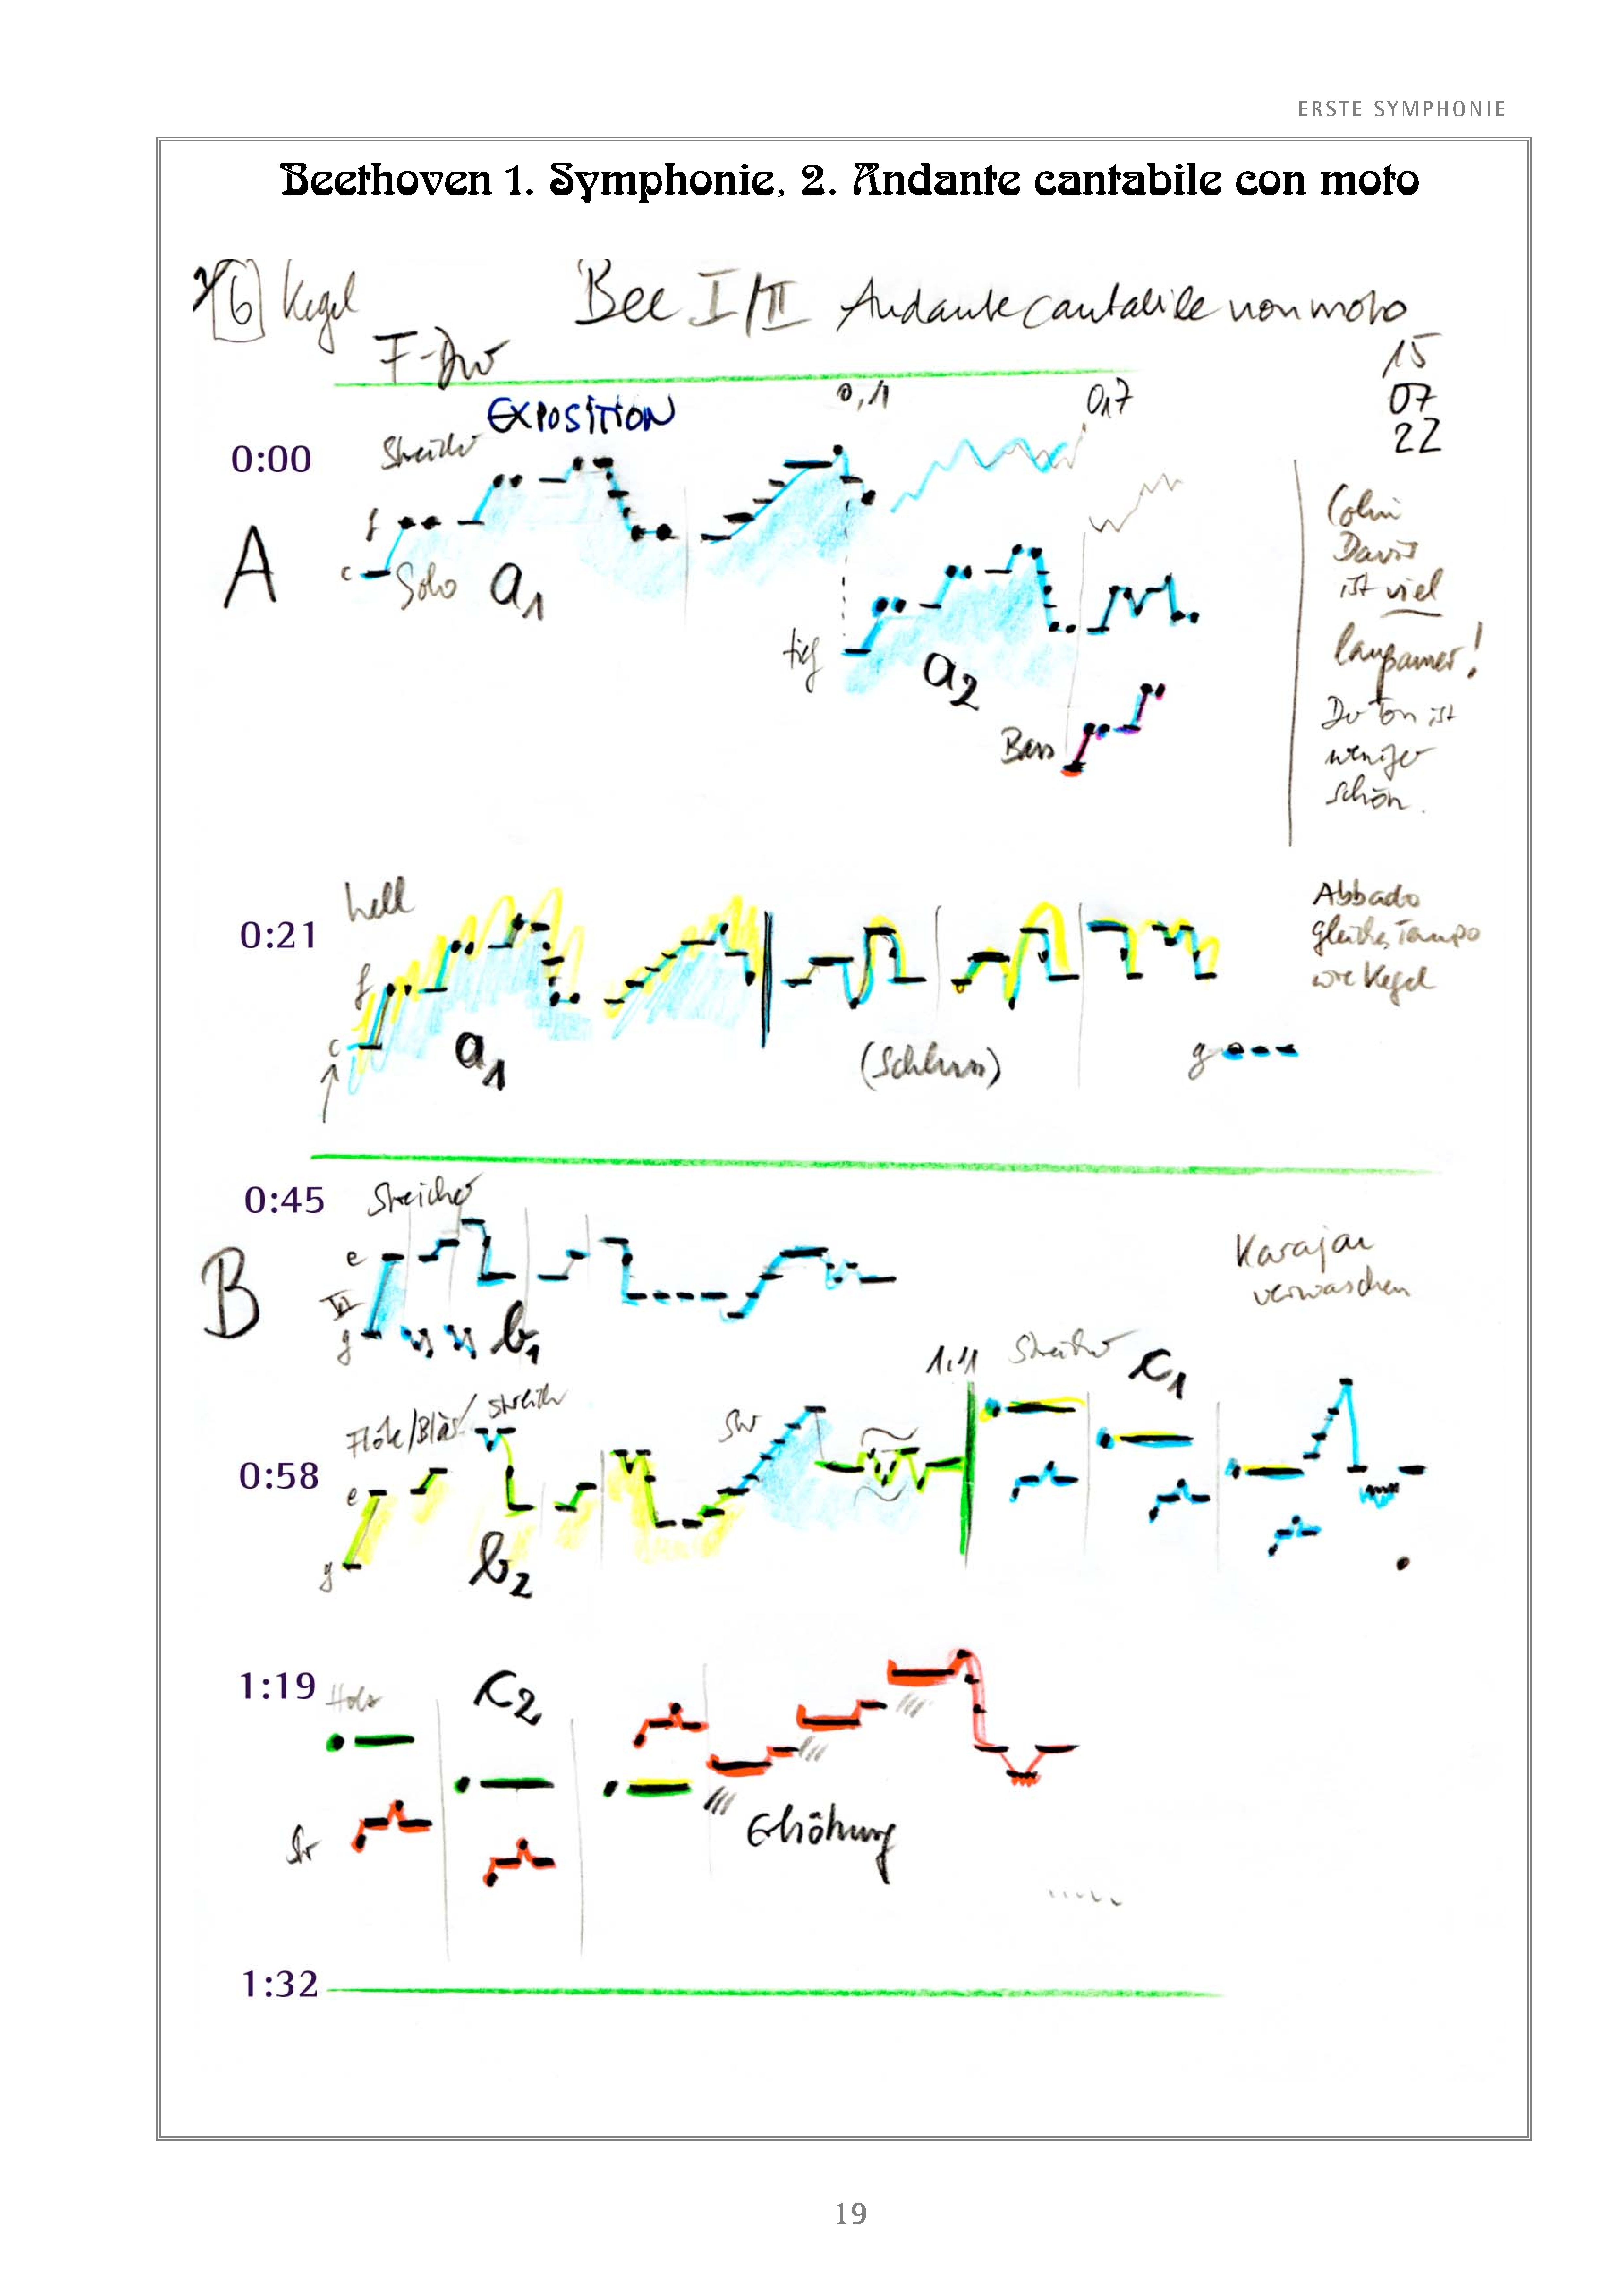 ERSTE SYMPHONIE
Beethoven 1. Symphonie, 2. Andante cantabile con moto
6 Kegel
Bee I/II Andante cantabile non moto
F-Dur
15
07
22
EXPOSITION
0,1
0,7
0:00
Streicher
f
A
c
Solo
a1
tief
a2
Bass
Colin
Davis
ist viel
langsamer!
Der Ton ist
weniger
schön.
hell
0:21
f
c
a1
(Schluss)
g
Abbado
gleiches Tempo
wie Kegel
0:45
Streicher
B
e
VI
g
b1
Karajan
verwaschen
1,11
Streicher
c1
Flöte/Bläs
Streich
Str
0:58
e
g
b2
1:19
Holz
c2
Str
Erhöhung
1:32
19